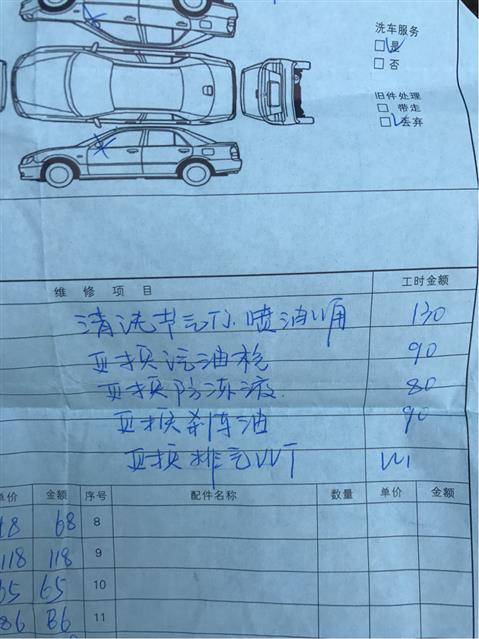 洗车服务
是
否
旧件处理
带走
丢弃
维修项目 工时金额
清洗节气门.喷油嘴 130
更换汽油格 90
更换防冻液. 80
更换刹车油 90
更换排气VVT
单价 金额 序号 配件名称 数量 单价 金额
68 8
118 118 9
65 10
86 11